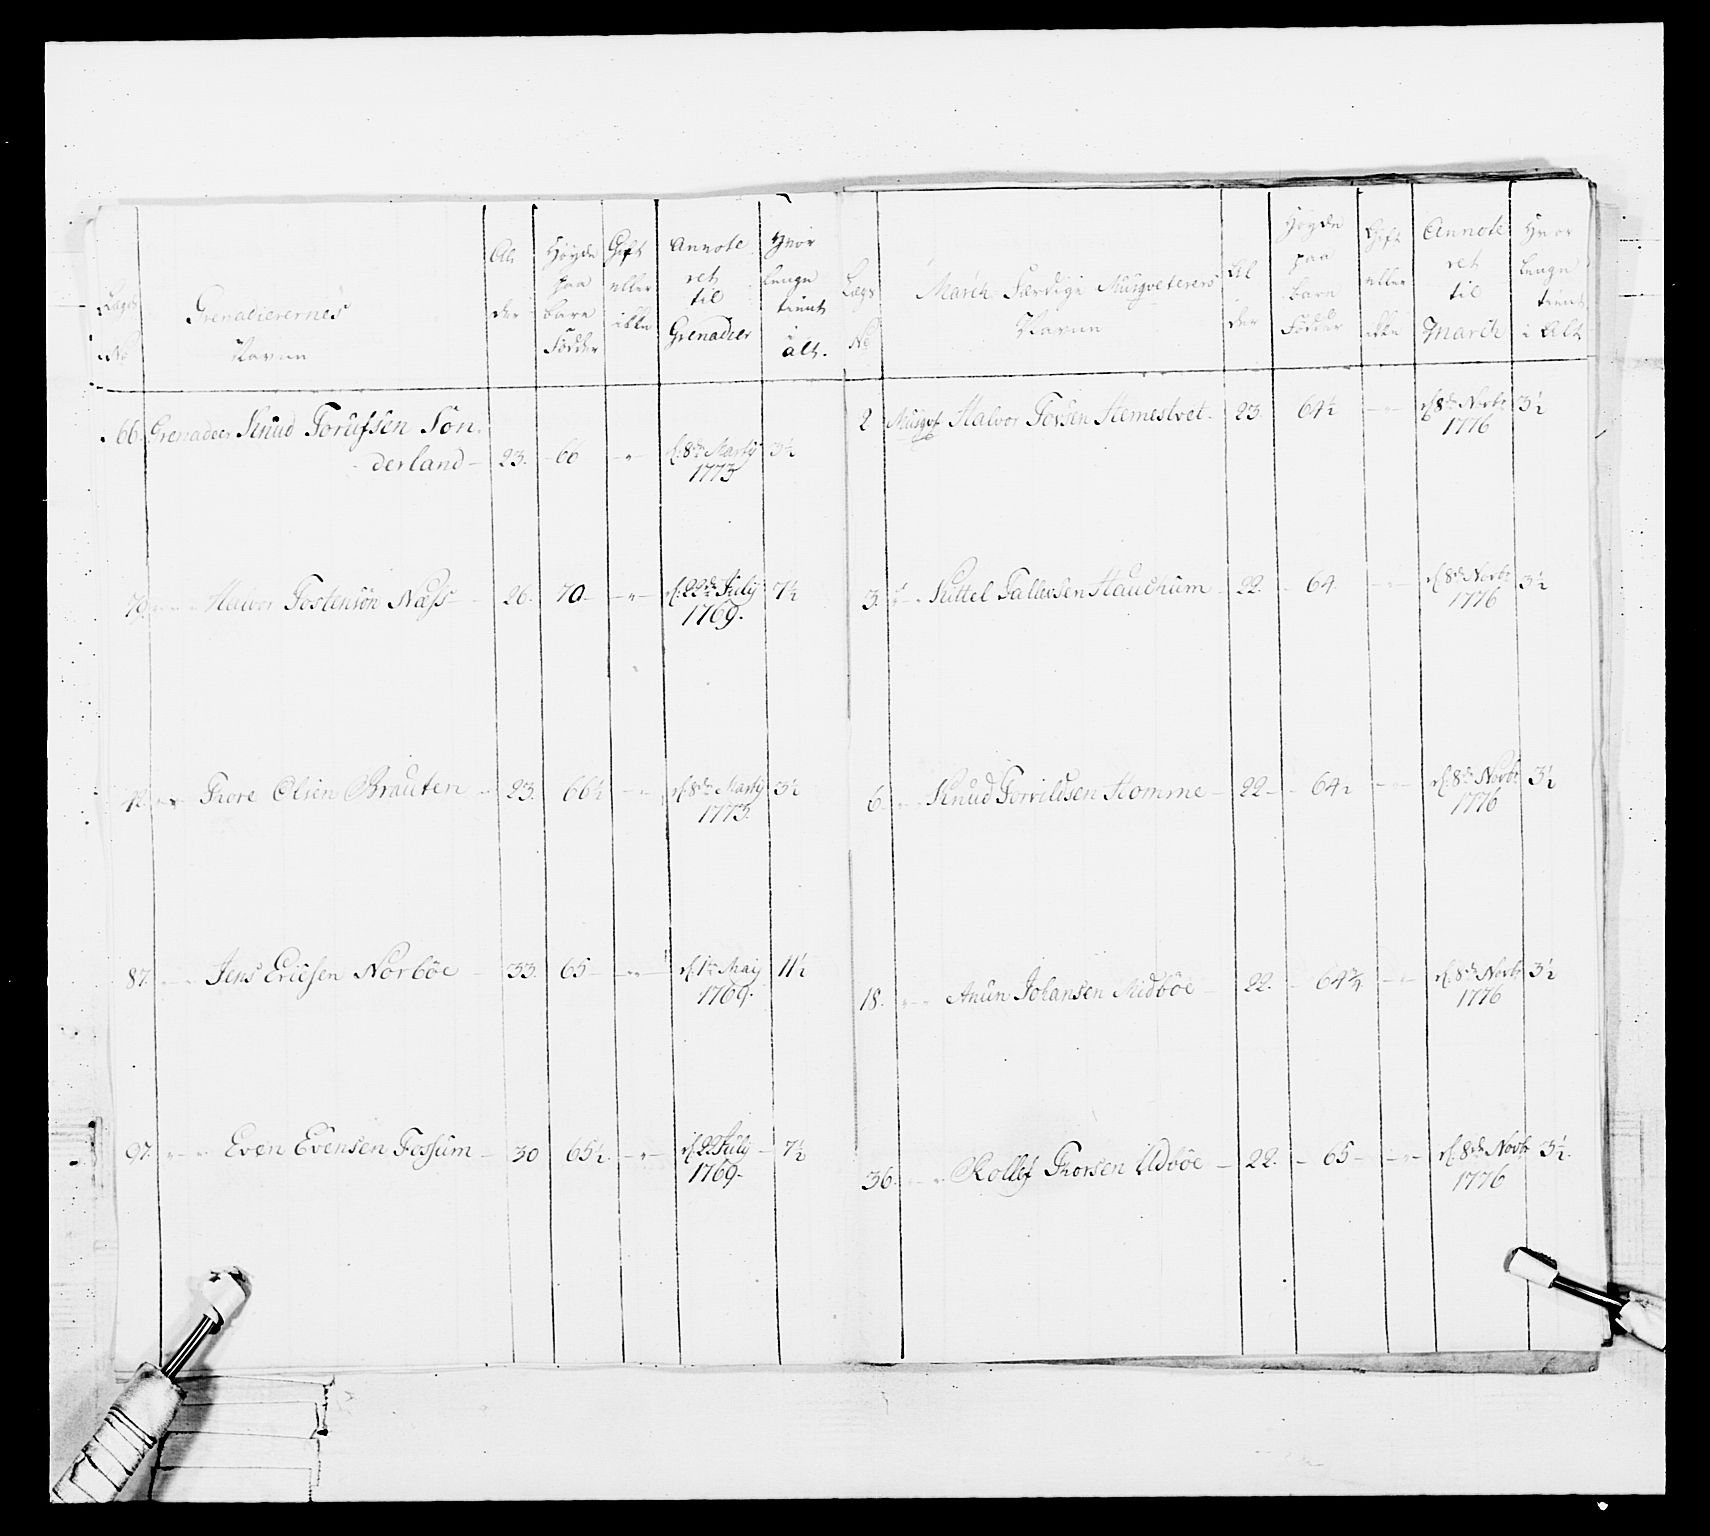 Lægs
No
Grenadierernes
Navne
Al
der
Høyde
paa
bare
Fødder
Gift
eller
ikke
Annote
ret
til
Grenadeer
Hvor
lenge
tient
i
alt.
66. Grenadeer Knud Torufsen Søn
derland - 23. - 66 - " - d. 8de Martij 3½
1773
70. - " - Halvor Tostensøn Næss - 26. 70 - - " - d. 22de Julij 7½
1769.
- " - Thore Olsen Brauten - 23. 66½ - " - d. 8de Martij 3½
1773.
87. - " - Jens Ericsen Norbøe - 33. 65 - - " - d. 1te Maij 11½
1769.
97. - " - Even Evensen Fossum - 30 65½ - " - d. 22 Julij - 7½
1769.
Lægs
No
March Færdige Musqveterers
Navne
Al
der
Høyde
paa
bare
Fødder
Gift
eller
ikke
Annote
ret
til
March
Hvor
lenge
tient
i Alt
2 Musqvt Halvor Tovsen Hemestvet - 23. 64½ - " - d. 8de Novbr 3½
1776
3. - " - Kittel Tallevsen Haukum - 22. - 64. - " - d. 8de Novbr 3½
1776
6. - " - Knud Torvildsen Homme - 22 - - 64½ - " - d. 8de Novbr 3½
1776
18. - " - Anun Johansen Midbøe - 22. - 64¾ - " - d. 8de Novbr 3½
1776
36. - " - Rollef Thorsen Udbøe - 22. - 65 - - " - d. 8de Novbr 3½.
1776